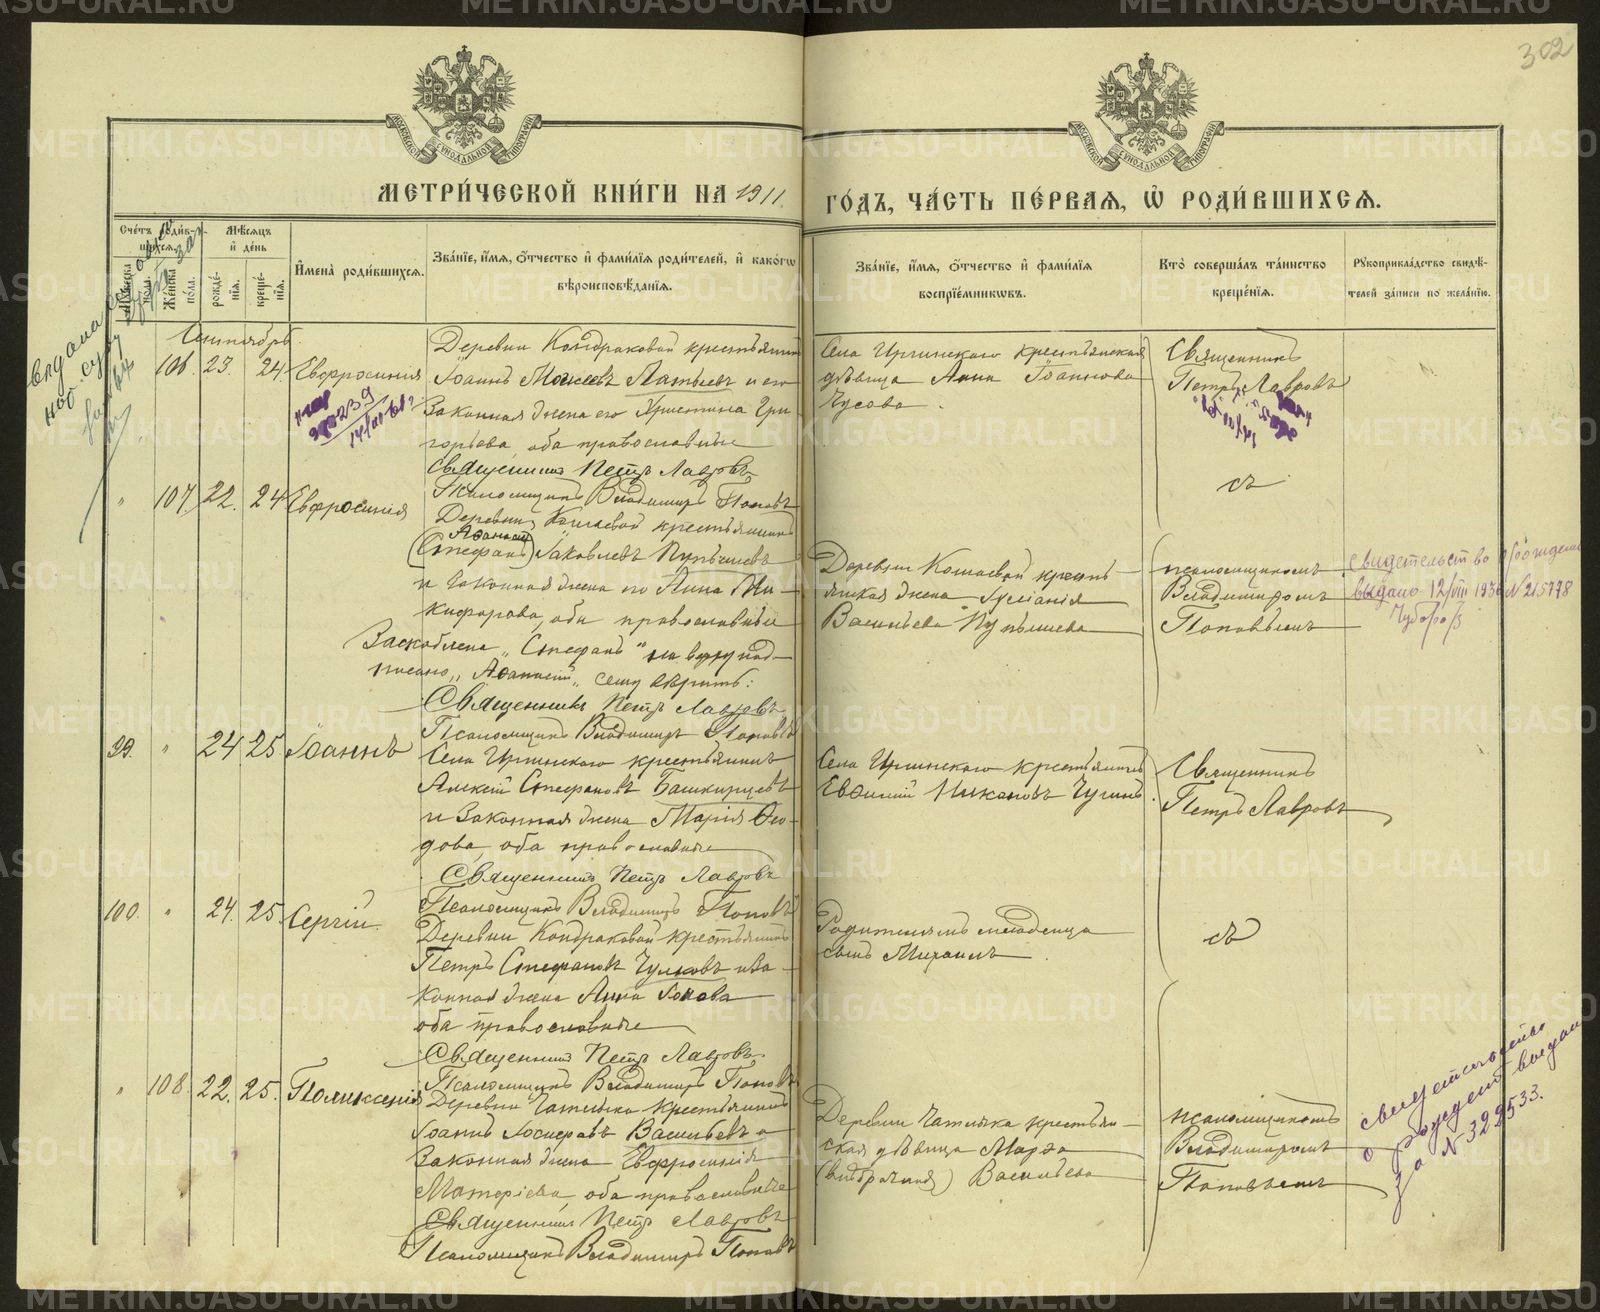 302
МОСКОВСКОЙ СѴНОДАЛЬНОЙ ТИПОГРАФІИ
МОСКОВСКОЙ СѴНОДАЛЬНОЙ ТИПОГРАФІИ
МЕТРИ́ЧЕСКОЙ КНИ́ГИ НА 1911 ГО́ДЪ, ЧА́СТЬ ПЕ́РВАЯ, Ѽ РОДИ́ВШИХСЯ.
Счетъ родив-
шихся.
Мѣсяцъ
и день
Мужеска пола.
Женска пола.
рожде-
нія.
креще-
нія.
Имена родившихся.
Званіе, имя, отчество и фамилія родителей, и какогѡ
вѣроисповѣданія.
Званіе, имя, отчество и фамилія
воспріемникѡвъ.
Кто совершалъ таинство
крещенія.
Рукоприкладство свидѣ-
телей записи по желанію.
Сентябрь.
106. 23. 24. Евфросинія
Деревни Кондраковой крестьянинъ
Іоаннъ Моисеевъ Латыевъ и его
законная жена его Христина Гри-
горьева, оба православные
Священникъ Петръ Лавровъ
Псаломщикъ Владимиръ Поповъ
Села Иргинскаго крестьянская
дѣвица Анна Іоаннова
Чусова.
Священникъ
Петръ Лавровъ
" 107. 22. 24 Евфросинія
Деревни Кошаевой крестьянинъ
Аѳанасій
(Стефанъ) Іаковлевъ Пупышевъ
и законная жена его Анна Ни-
кифорова, оба православные
Заскоблено „Стефанъ" на верху над-
писано „Аѳанасій„ сему вѣрить:
Священникъ Петръ Лавровъ
Псаломщикъ Владимиръ Поповъ
Деревни Кошаевой кресть-
янская жена Іуліанія
Васильева Пупышева
псаломщикомъ
Владимиромъ
Поповымъ
свидетельство о рождени
выдано 12/VIII 1936 N 215778
99. " 24 25 Іоаннъ
Села Иргинскаго крестьянинъ
Алексій Стефановъ Башкирцевъ
и законная жена Марія Ѳео-
дова, оба православные
Священникъ Петръ Лавровъ
Псаломщикъ Владимиръ Поповъ
Села Иргинскаго крестьянинъ
Евѳимій Никоновъ Чугинъ.
Священникъ
Петръ Лавровъ
100. " 24. 25. Сергій.
Деревни Кондраковой крестьянинъ
Петръ Стефановъ Чулковъ и за-
конная жена Анна Іонова
оба православные
Священникъ Петръ Лавровъ
Псаломщикъ Владимиръ Поповъ
Родителямъ младенца
сынъ Михаилъ.
" 108. 22. 25. Поликсенія
Деревни Чатлыка крестьянинъ
Іоаннъ Іосифовъ Васильевъ и
законная жена Евфросинія
Матфіева, оба православные
Священникъ Петръ Лавровъ
Псаломщикъ Владимиръ Поповъ
Деревни Чатлыка крестьян-
ская дѣвица Марѳа
(внѣбрачная) Васильева
псаломщикомъ
Владимиромъ
Поповымъ
свидетельство
о рождени выдан
за N 322533.
METRIKI.GASO-URAL.RU